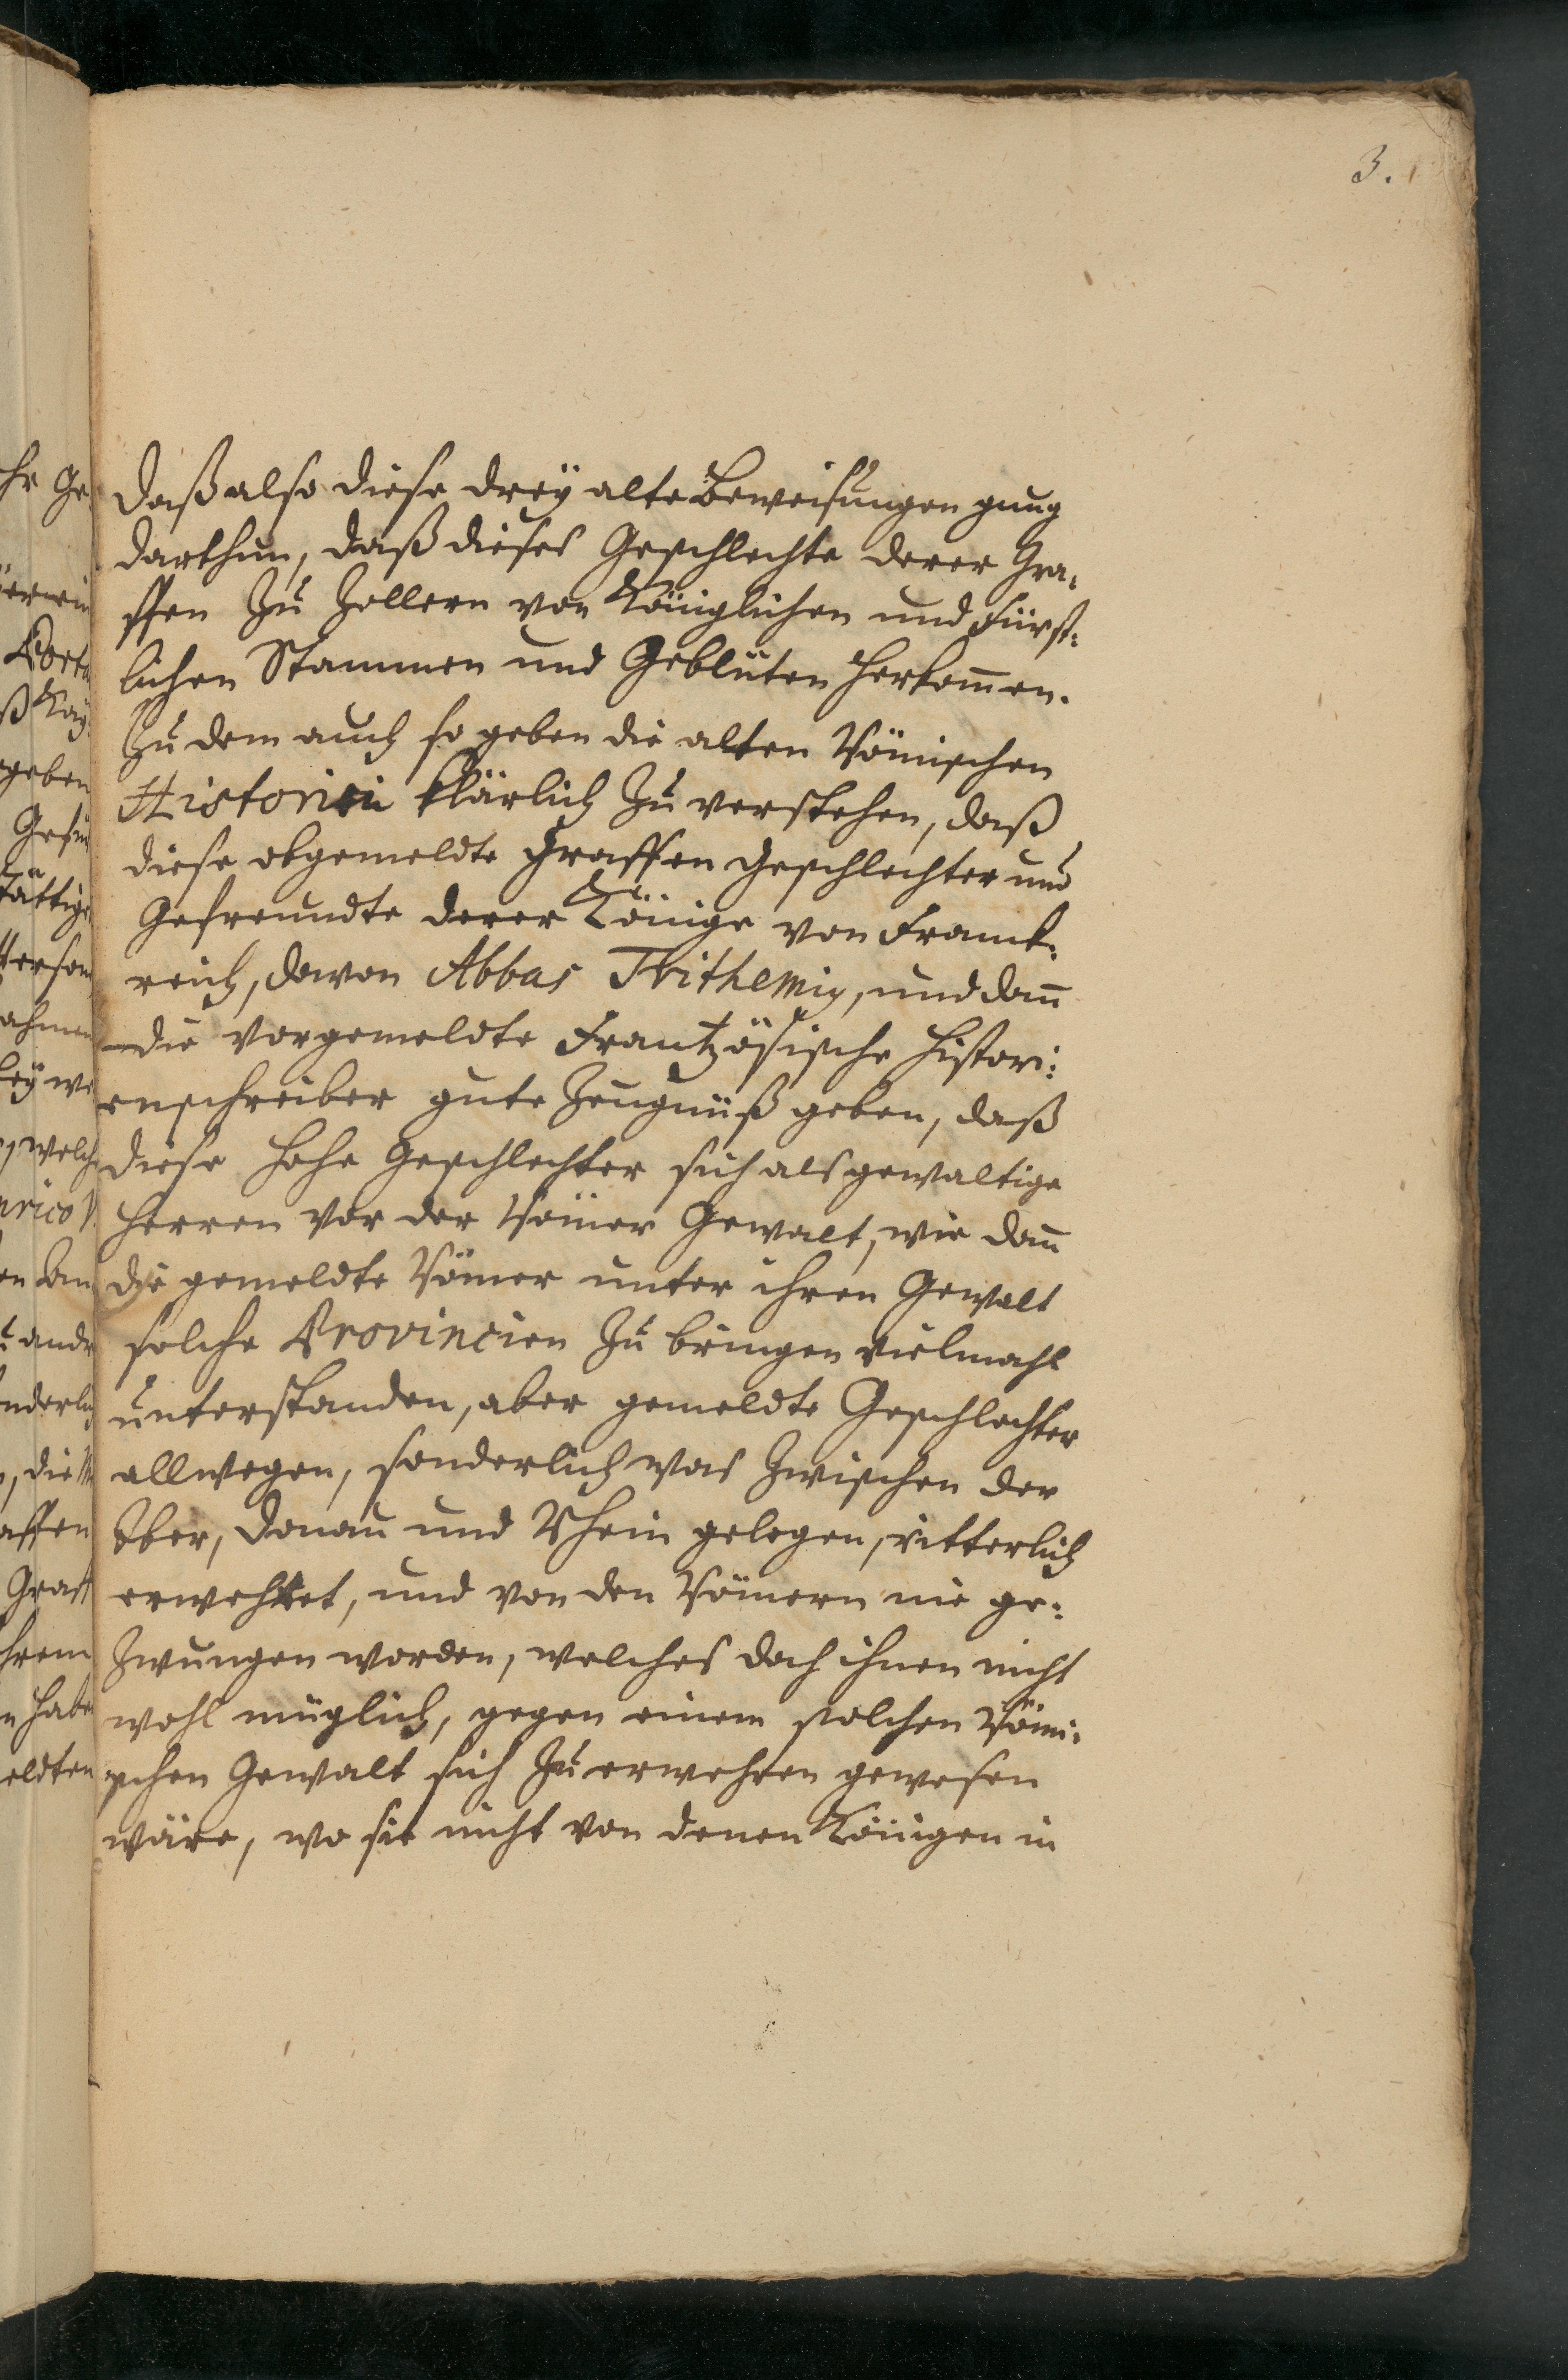 3.
Daß also diese dreÿ alte Beweisungen gnug
darthun, daß dieses Geschlechte derer Gra-
ffen zu Zollern von Königlichen und Fürst-
lichen Stammen und Geblüten herkom̅en.
Zu dem auch so geben die alten Römischen
Historici klärlich zu verstehen, daß
diese obgemeldte Graffen Geschlechter und
Gefreundte derer Könige von Franck-
reich, davon Abbas Trithemius, und dan̅
die vorgemeldte Frantzösische Histori-
enschreiber gute Zeugnüß geben, daß
diese hohe Geschlechter sich als gewaltige
Herren vor der Römer Gewalt, wie dan̅
die gemeldte Römer unter ihren Gewalt
solche Provincien zu bringen vielmahl
unterstanden, aber gemeldte Geschlechter
allwegen, sonderlich was zwischen der
Iber, Donau und Rhein gelegen, ritterlich
erwehret, und von den Römern nie ge-
zwungen worden, welches doch ihnen nicht
wohl müglich, gegen einem solchen Römi-
schen Gewalt sich zu erwehren gewesen
wäre, wo sie nicht von denen Königen in